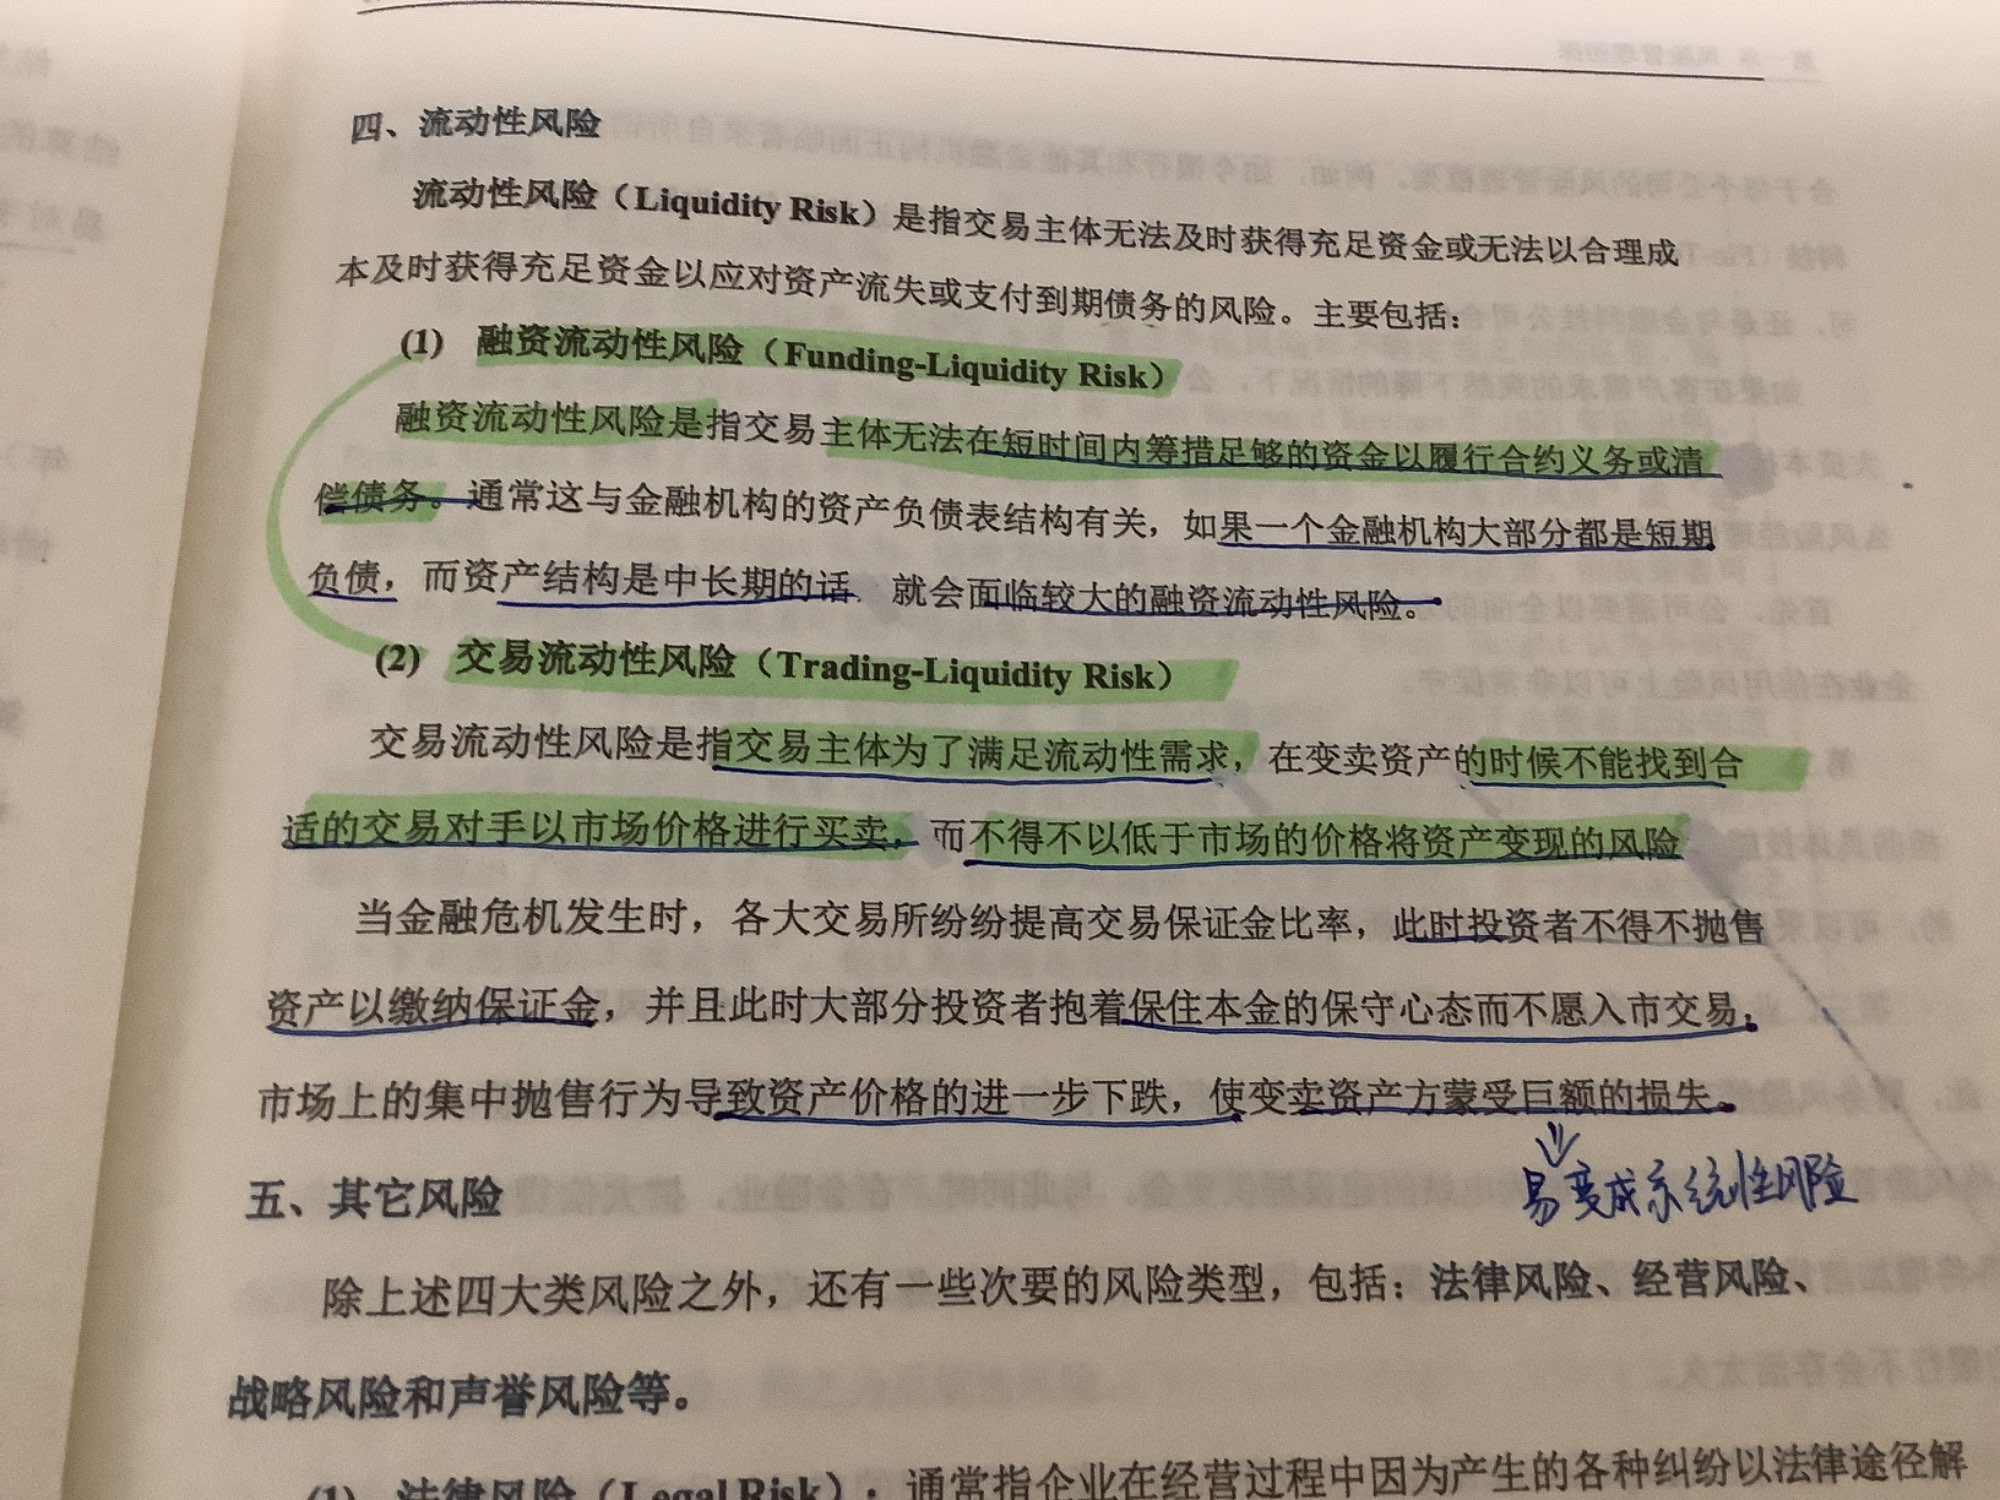 四、流动性风险
流动性风险（Liquidity Risk）是指交易主体无法及时获得充足资金或无法以合理成
本及时获得充足资金以应对资产流失或支付到期债务的风险。主要包括：
(1) 融资流动性风险（Funding-Liquidity Risk）
融资流动性风险是指交易主体无法在短时间内筹措足够的资金以履行合约义务或清
偿债务。通常这与金融机构的资产负债表结构有关，如果一个金融机构大部分都是短期
负债，而资产结构是中长期的话 就会面临较大的融资流动性风险。
(2) 交易流动性风险（Trading-Liquidity Risk）
交易流动性风险是指交易主体为了满足流动性需求，在变卖资产的时候不能找到合
适的交易对手以市场价格进行买卖，而不得不以低于市场的价格将资产变现的风险
当金融危机发生时，各大交易所纷纷提高交易保证金比率，此时投资者不得不抛售
资产以缴纳保证金，并且此时大部分投资者抱着保住本金的保守心态而不愿入市交易，
市场上的集中抛售行为导致资产价格的进一步下跌，使变卖资产方蒙受巨额的损失。
易变成系统性风险
五、其它风险
除上述四大类风险之外，还有一些次要的风险类型，包括：法律风险、经营风险、
战略风险和声誉风险等。
(1) 法律风险（Legal Risk）：通常指企业在经营过程中因为产生的各种纠纷以法律途径解